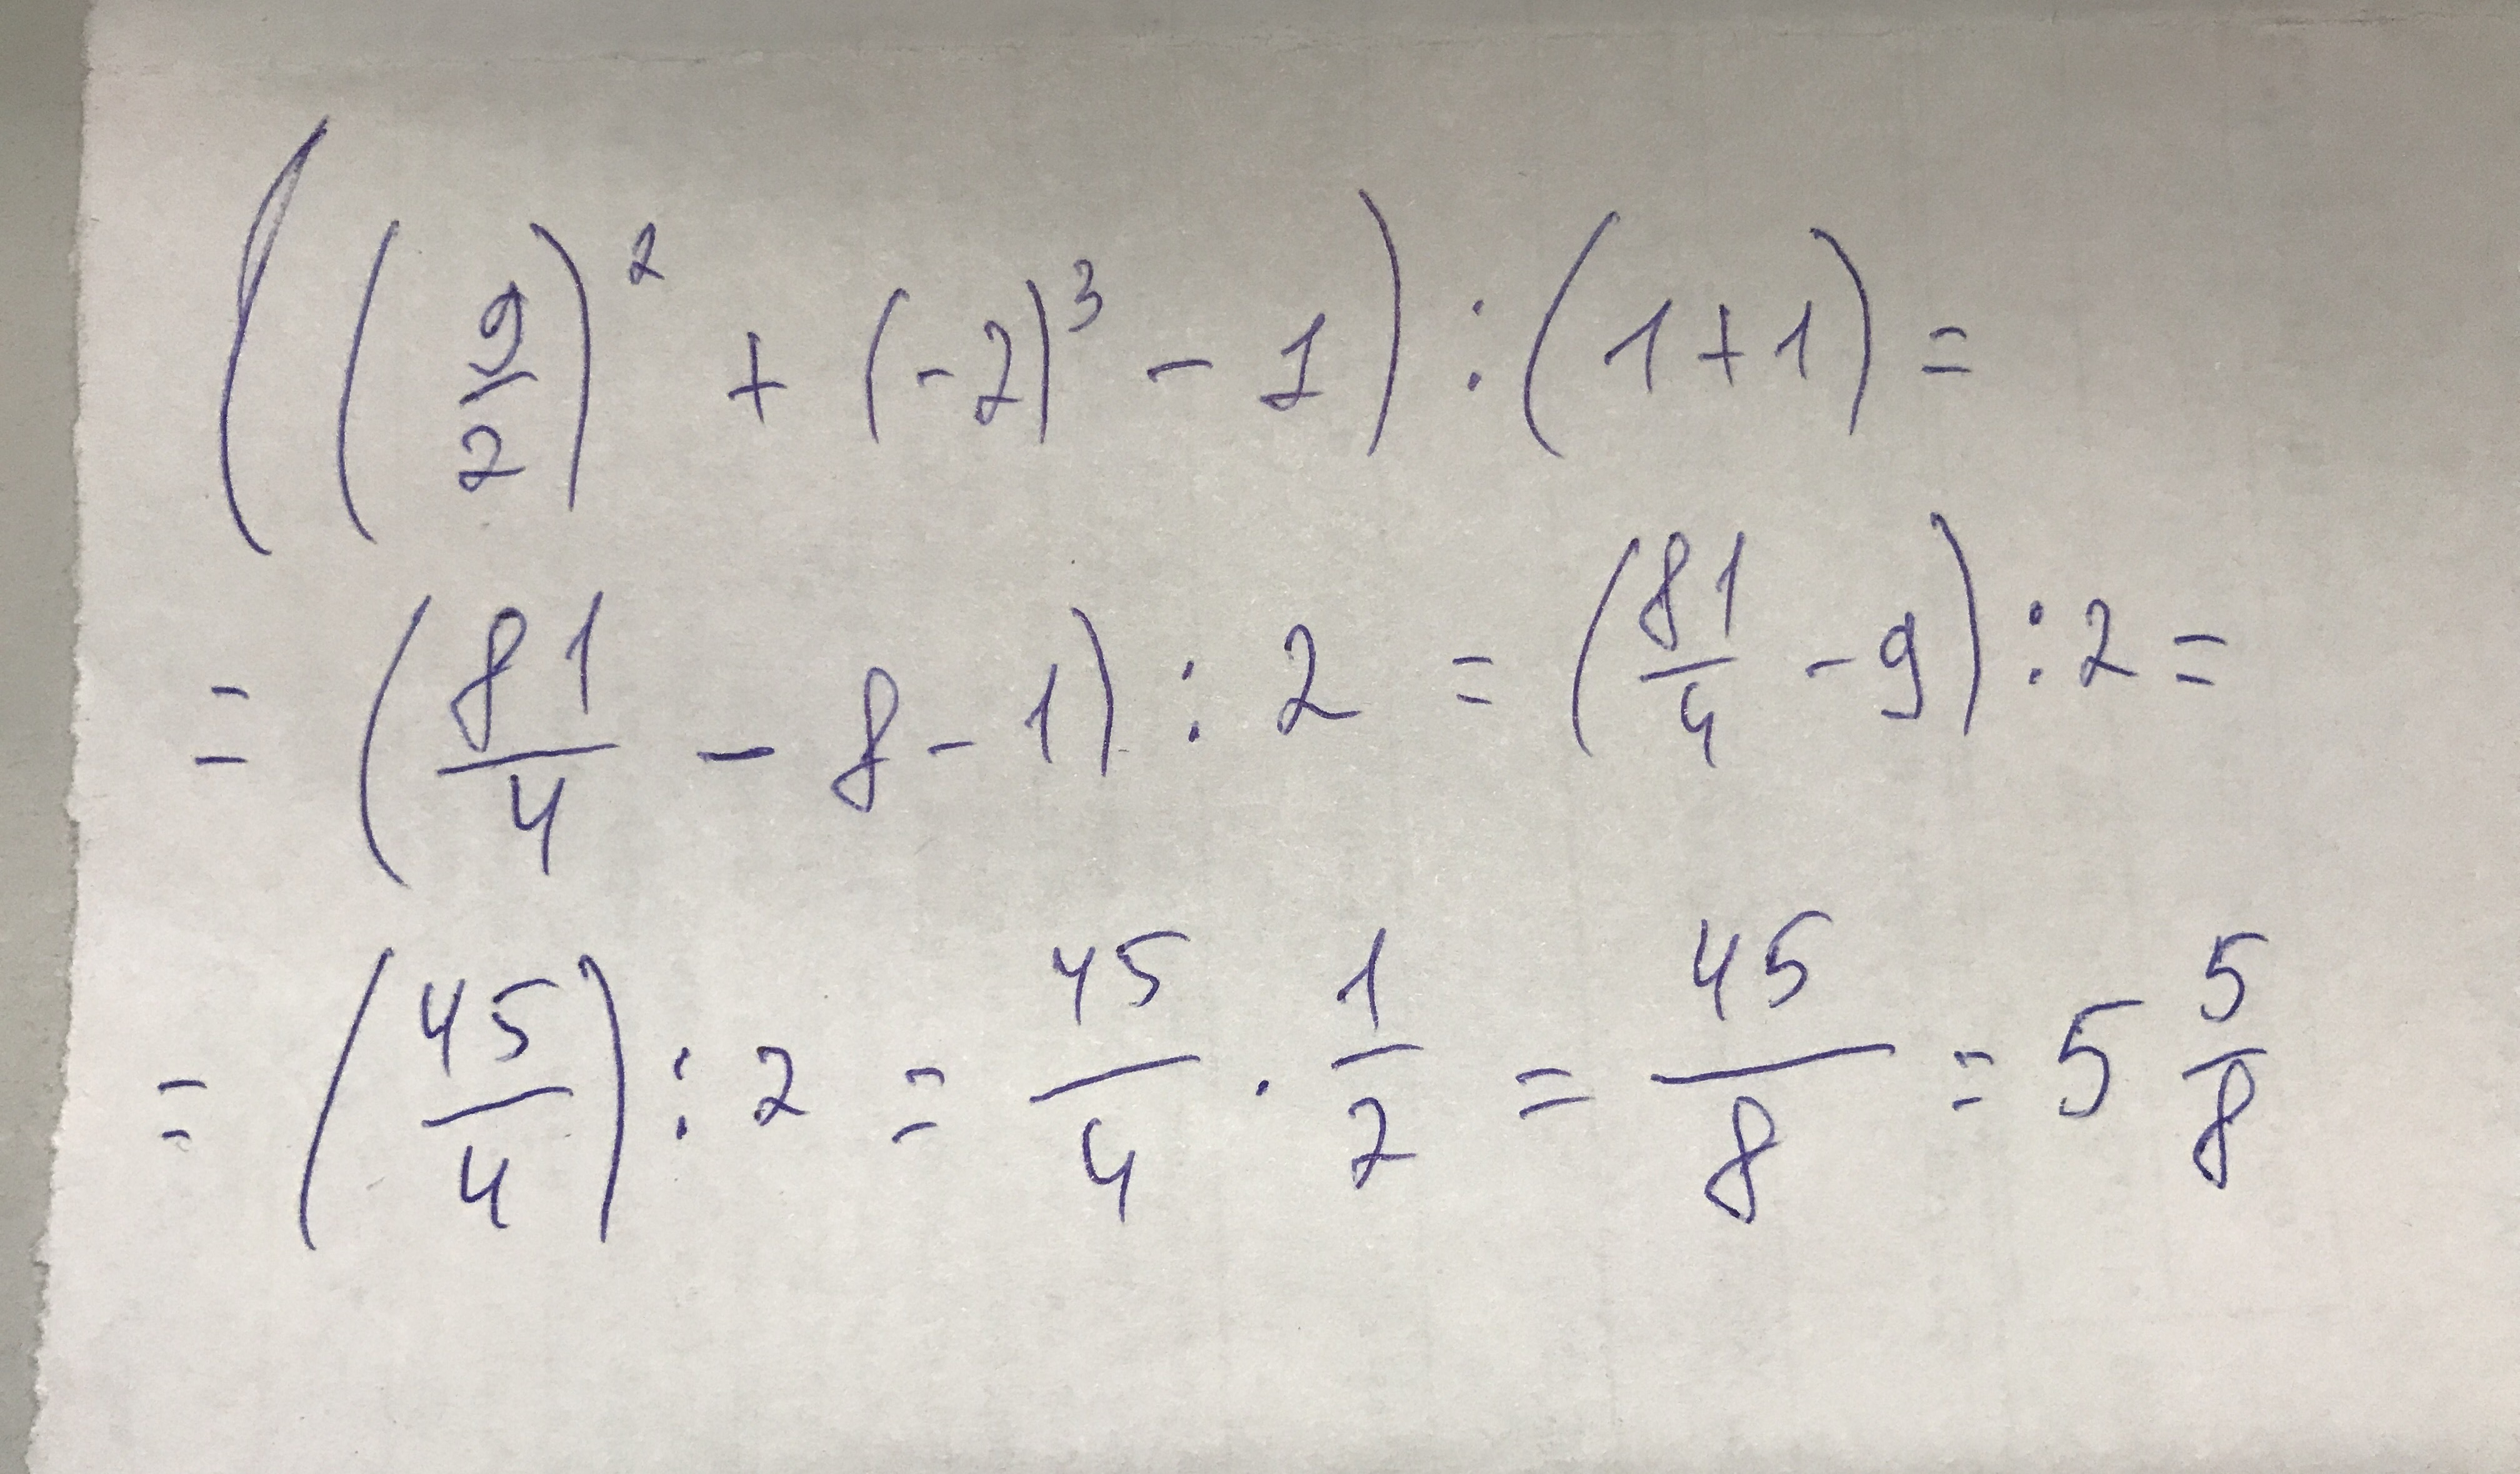 ((9/2)² + (-2)³ - 1) : (1+1) =
= (81/4 - 8 - 1) : 2 = (81/4 - 9) : 2 =
= (45/4) : 2 = 45/4 · 1/2 = 45/8 = 5 5/8